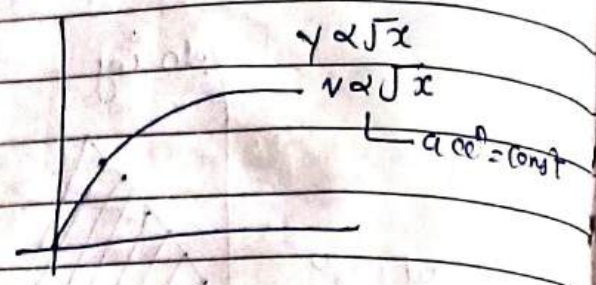 y ∝ √x
v ∝ √x
accⁿ = Const